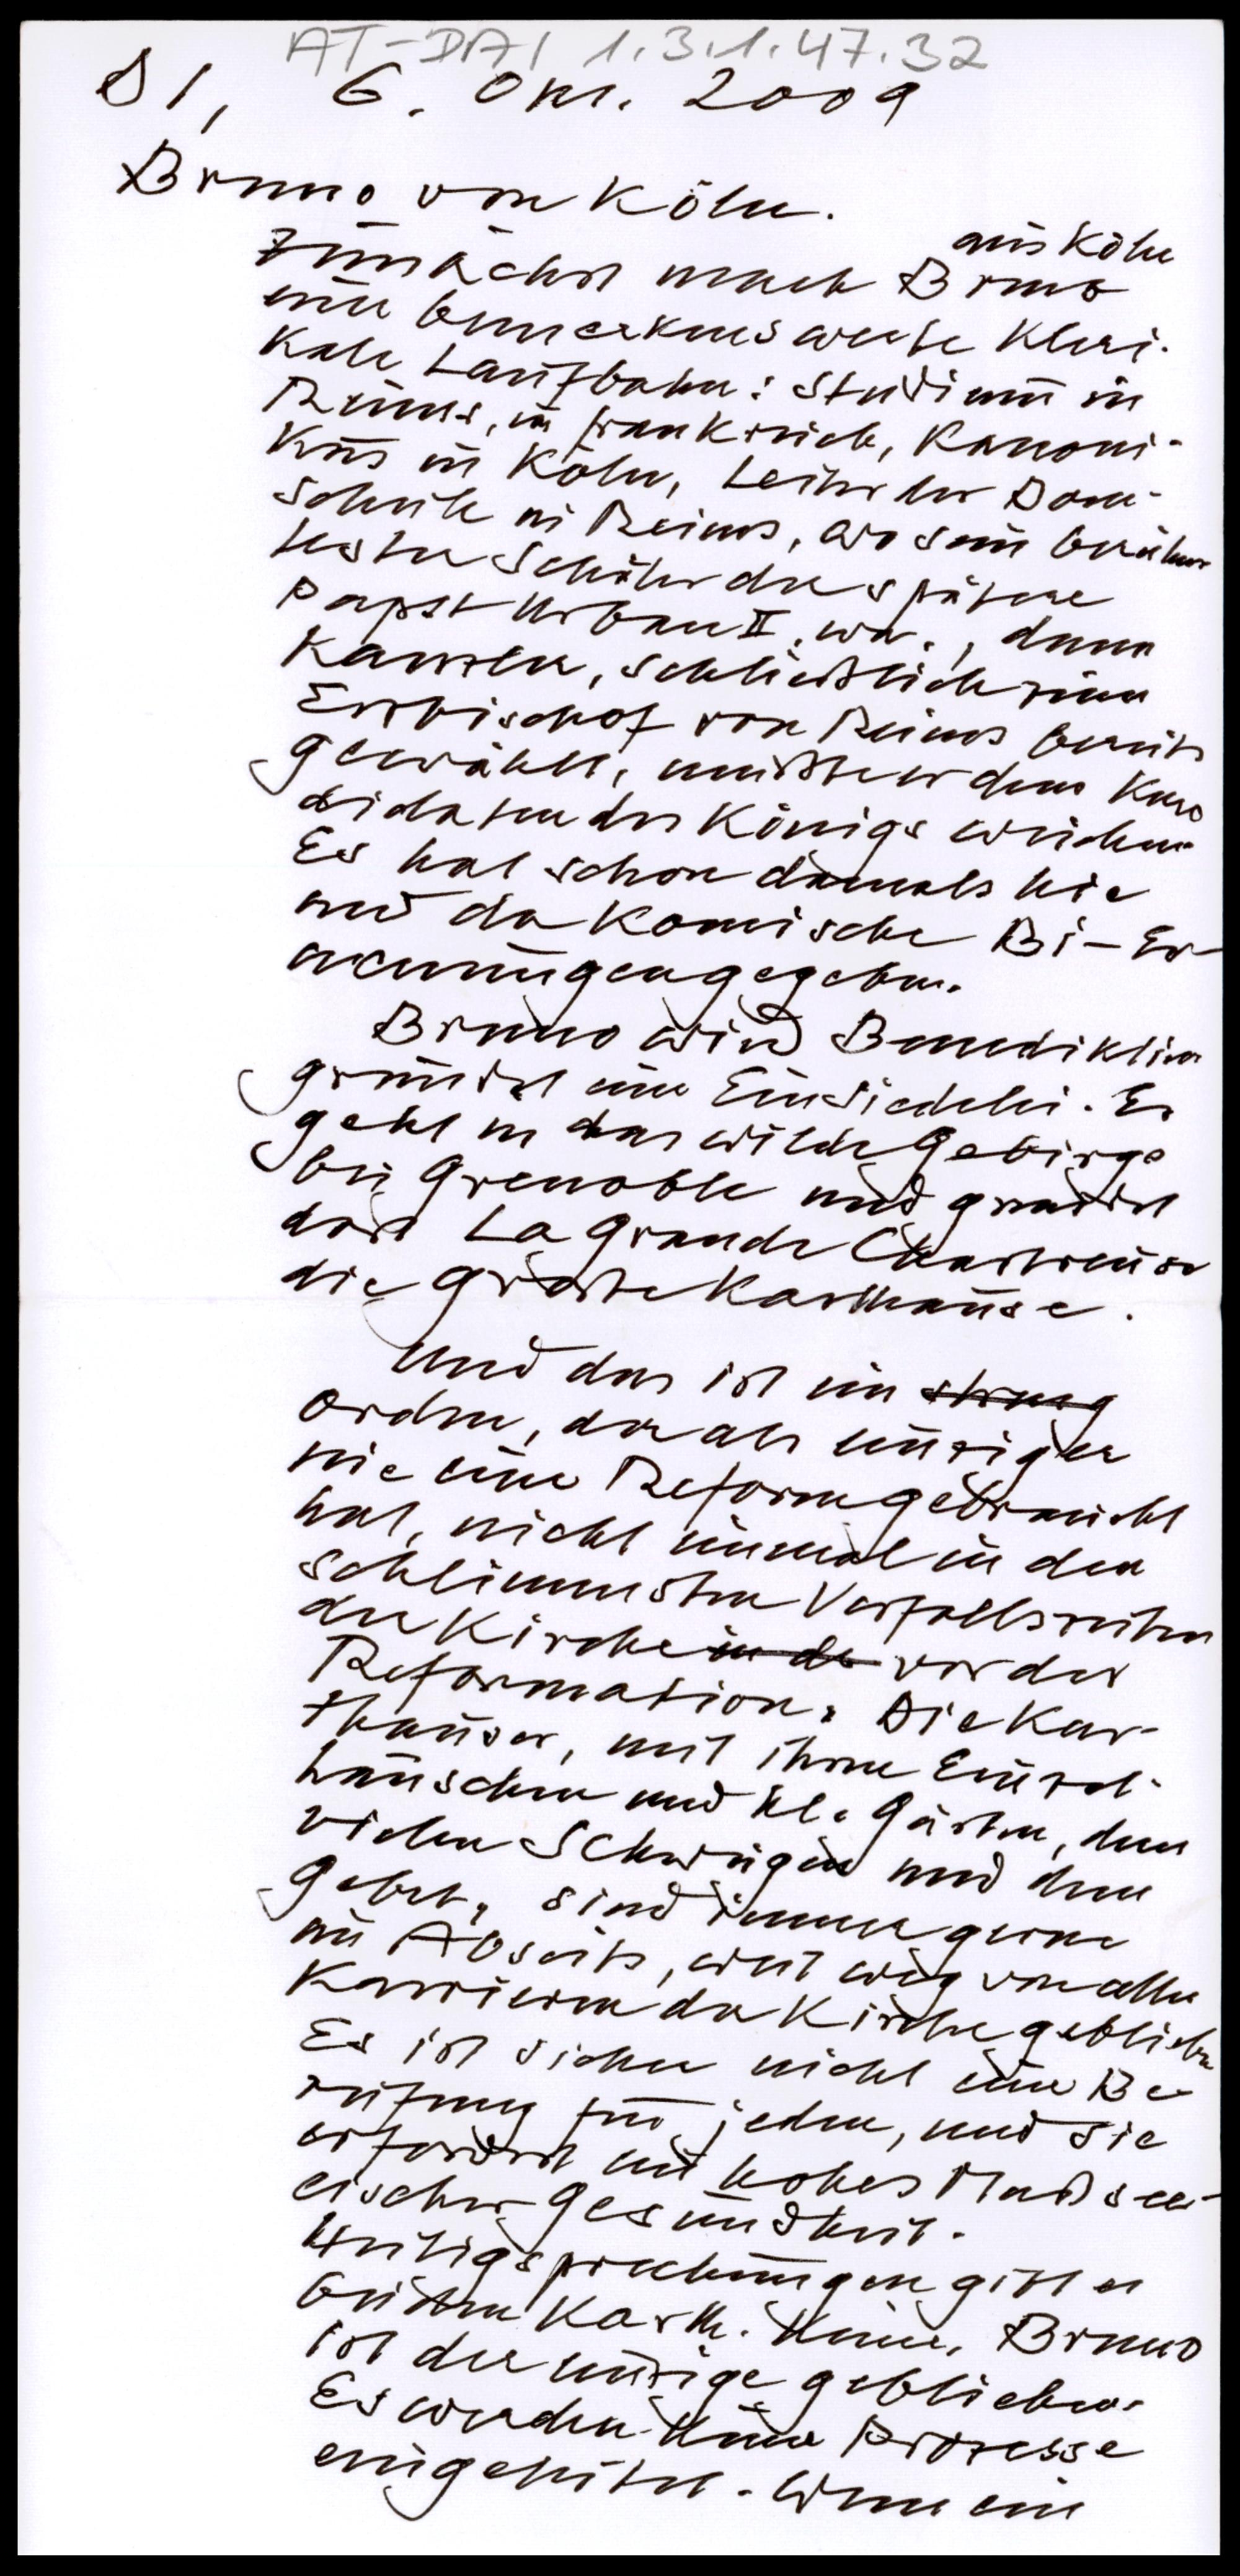 AT-DAI 1.3.1.47.32
DI, 6. Okt. 2009
Bruno von Köln.
aus Köln
Zunächst macht Bruno
eine bemerkenswerte kleri-
kale Laufbahn: Studium in
Reims, in Frankreich, Kanoni-
kus in Köln, Leiter der Dom-
schule in Reims, wo sein berühm
tester Schüler der spätere
Papst Urban II. war, dann
Kanzler, schließlich zum
Erzbischof von Reims bereits
gewählt, mußte er dem Kan
didaten des Königs weichen.
Es hat schon damals hie
und da komische Bi-Er
nennungen gegeben.
Bruno wird Benediktiner
gründet eine Einsiedelei. Er
geht in das wilde Gebirge
bei Grenoble und gründet
dort La Grande Chartreuse
die große Karthause.
Und das ist ein streng
Orden, der als einziger
nie eine Reform gebraucht
hat, nicht einmal in den
schlimmsten Verfallszeiten
der Kirche in der vor der
Reformation. Die Kar-
thäuser, mit ihren Einzel-
häuschen und kl. Gärten, dem
vielen Schweigen und dem
Gebet, sind immer gerne
im Abseits, weit weg von allen
Karrieren der Kirche geblieben
Es ist sicher nicht eine Be-
rufung für jeden, und sie
erfordert ein hohes Maß see-
lischer Gesundheit.
Heiligsprechungen gibt es
bei den Karth. keine, Bruno
ist der einzige geblieben.
Es werden keine Prozesse
eingeleitet. Wenn ein